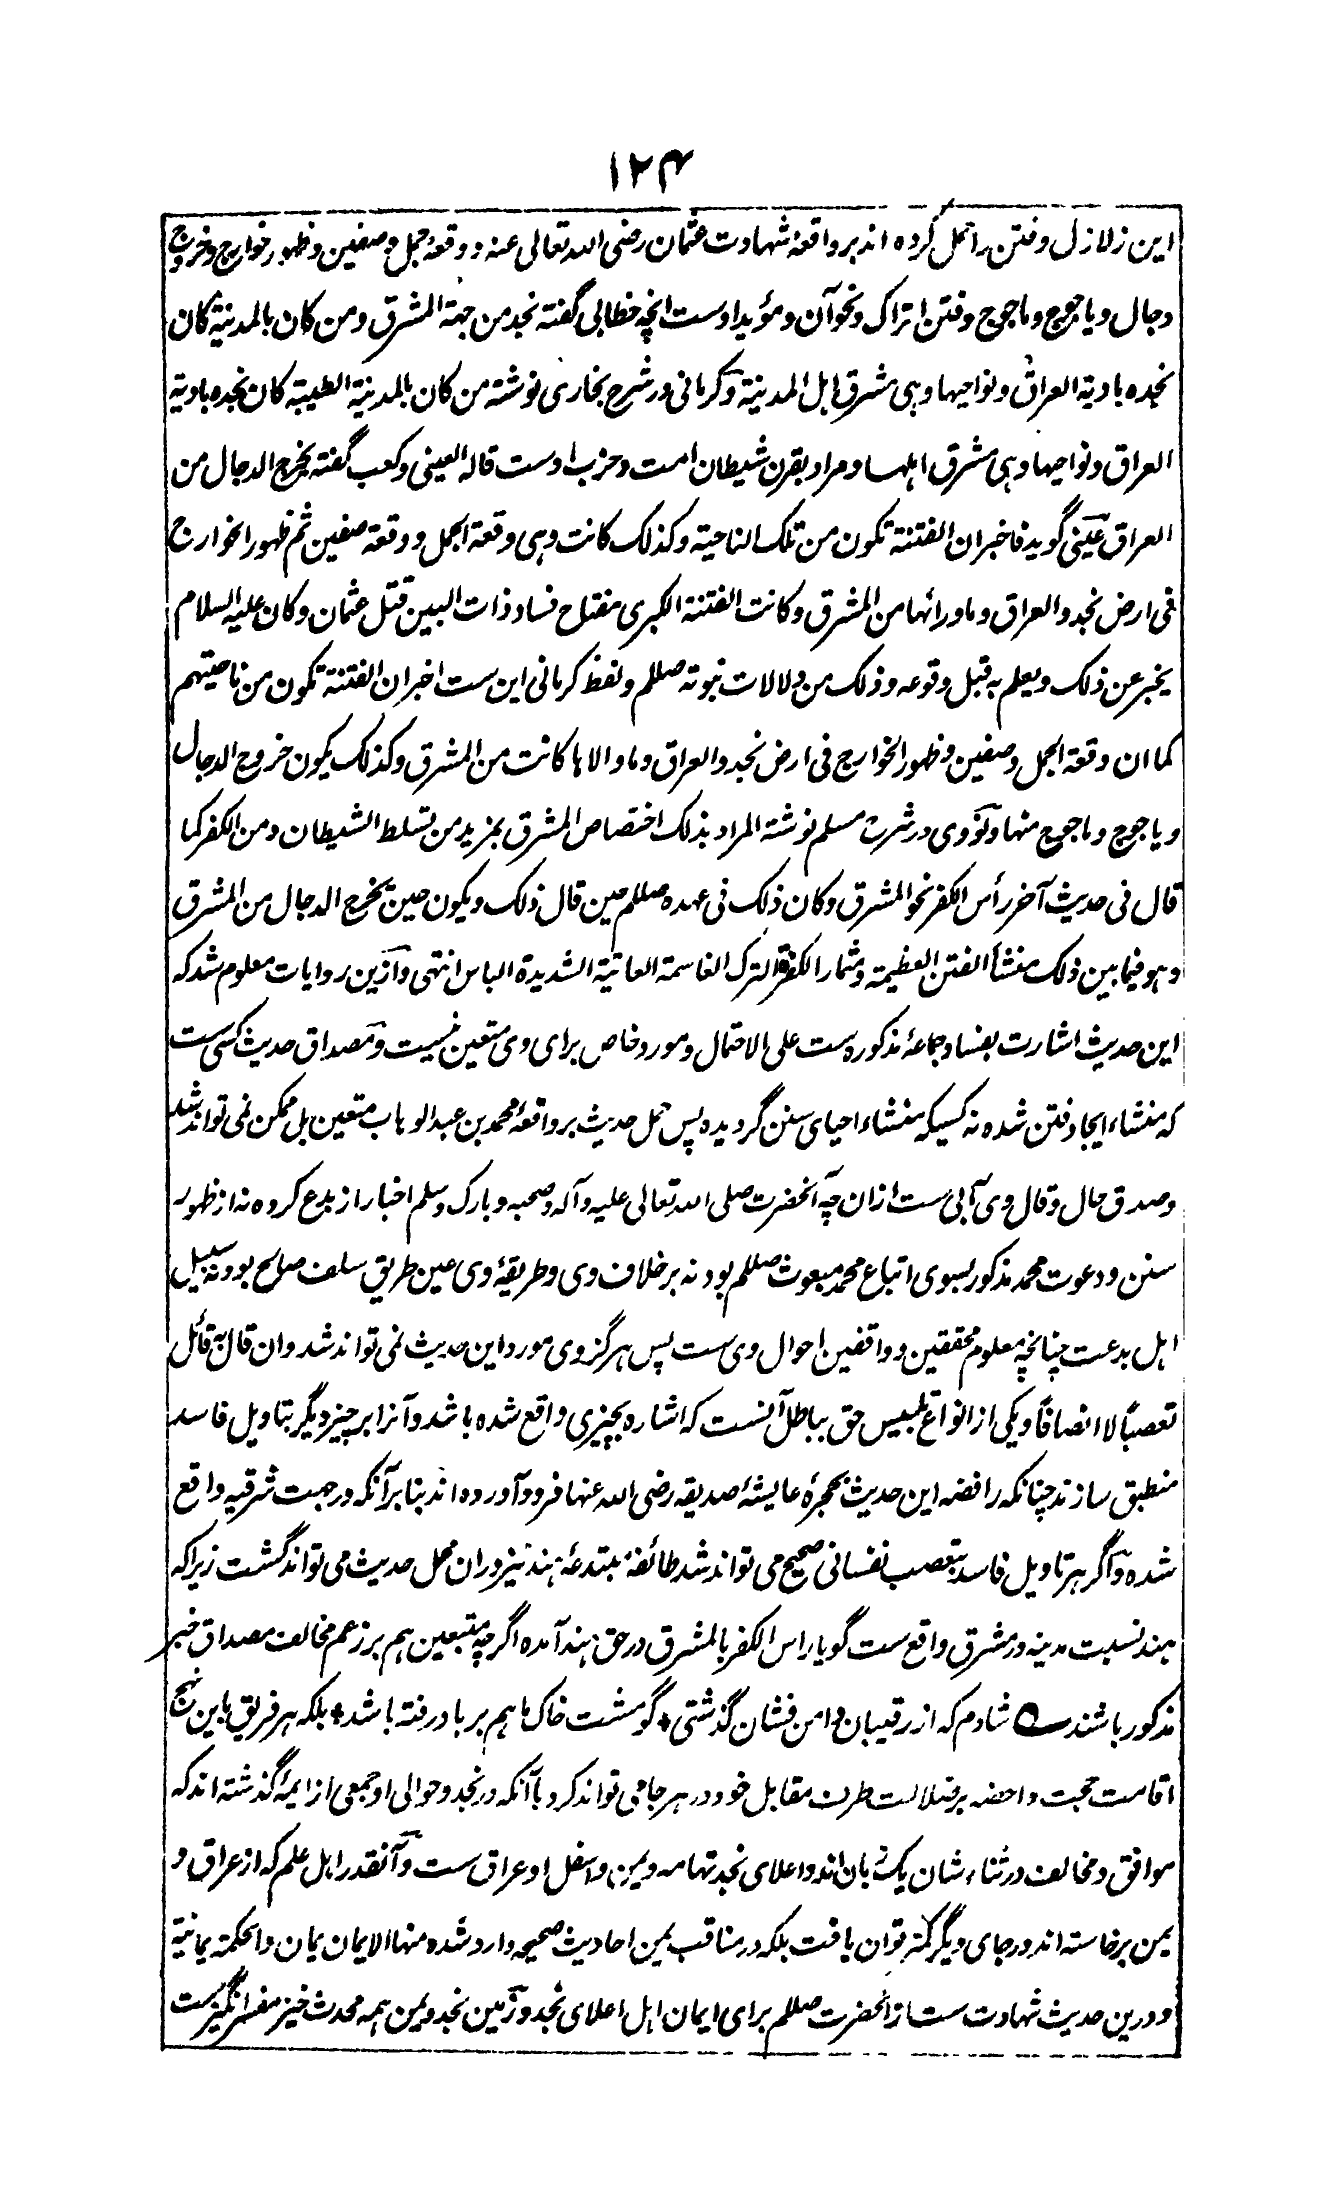 ۱۲۴
این زلازل و فتن را حمل کرده اند بر واقعهٔ شهادت عثمان رضی الله تعالی عنه و وقعهٔ جمل و صفین و ظهور خوارج و خروج
دجال و یاجوج و ماجوج و فتن اتراک و نحو آن و مؤید اوست انچه خطابی گفته نجد من جهة المشرق و من کان بالمدینة کان
نجده بادیة العراق و نواحیها و هی مشرق اهل المدینة و کرمانی در شرح بخاری نوشته من کان بالمدینة الطیبة کان نجده بادیة
العراق و نواحیها و هی مشرق اهلها و مراد بقرن شیطان امت و حزب اوست قاله العینی و کعب گفته یخرج الدجال من
العراق عینی گوید فاخبر ان الفتنة تکون من تلک الناحیة و کذلک کانت و هی وقعة الجمل و وقعة صفین ثم ظهور الخوارج
فی ارض نجد و العراق و ما ورائها من المشرق و کانت الفتنة الکبری مفتاح فساد ذات البین قتل عثمان و کان علیه السلام
یخبر عن ذلک و یعلم به قبل وقوعه و ذلک من دلالات نبوته صللم و لفظ کرمانی این ست اخبر ان الفتنة تکون من ناحیتهم
کما ان وقعة الجمل و صفین و ظهور الخوارج فی ارض نجد و العراق و ما والاها کانت من المشرق و کذلک یکون خروج الدجال
و یاجوج و ماجوج منها و نووی در شرح مسلم نوشته المراد بذلک اختصاص المشرق بمزید من تسلط الشیطان و من الکفر کما
قال فی حدیث آخر رأس الکفر نحو المشرق و کان ذلک فی عهده صللم حین قال ذلک و یکون حین یخرج الدجال من المشرق
و هو فیما بین ذلک منشأ الفتن العظیمة و مثار الکفرة الترک الغاسمة العاتیة الشدیدة الباس انتهی و ازین روایات معلوم شد که
این حدیث اشارت بفساد جماعهٔ مذکوره ست علی الاحتمال و مورد خاص برای وی متعین نیست و مصداق حدیث کسی ست
که منشاء ایجاد فتن شده نه کسیکه منشاء احیای سنن گردیده پس حمل حدیث بر واقعهٔ محمد بن عبد الوهاب متعین بل ممکن نمی تواند شد
و صدق حال و قال وی آبی ست ازان چه آنحضرت صلی الله تعالی علیه و آله و صحبه و بارک و سلم اخبار از بدع کرده نه از ظهور
سنن و دعوت محمد مذکور بسوی اتباع محمد مبعوث صللم بود نه بر خلاف وی و طریقهٔ وی عین طریق سلف صالح بود نه سبیل
اهل بدعت چنانچه معلوم محققین و واقفین احوال وی ست پس هرگز وی مورد این حدیث نمی تواند شد و ان قال به قائل
تعصبًا لا انصافًا و یکی از انواع تلبیس حق بباطل آنست که اشاره بچیزی واقع شده باشد و آنرا بر چیز دیگر بتاویل فاسد
منطبق سازند چنانکه رافضه این حدیث بحجرهٔ عایشهٔ صدیقه رضی الله عنها فرود آورده اند بنا بر آنکه در جهت شرقیه واقع
شده و اگر هر تاویل فاسد بتعصب نفسانی صحیح می تواند شد طائفهٔ مبتدعهٔ هند نیز دران محل حدیث می تواند گشت زیرا که
هند نسبت مدینه در مشرق واقع ست گویا راس الکفر بالمشرق در حق هند آمده اگرچه متبعین هم بر زعم مخالف مصداق خبر
مذکور باشند ؎ شادم که از رقیبان دامن فشان گذشتی * گو مشت خاک ما هم بر باد رفته باشد * بلکه هر فریق باین نهج
اقامت حجت داحضه بر ضلالت طرف مقابل خود در هر جا می تواند کرد با آنکه در نجد و حوالی او جمعی از ایمه گذشته اند که
موافق و مخالف در ثناء شان یک زبان اند و اعلای نجد تهامه و یمن و اسفل او عراق ست و آنقدر اهل علم که از عراق و
یمن برخاسته اند در جای دیگر کمتر توان یافت بلکه در مناقب یمن احادیث صحیحه وارد شده منها الایمان یمان و الحکمة یمانیة
و درین حدیث شهادت ست از آنحضرت صللم برای ایمان اهل اعلای نجد و زمین نجد و یمن همه محدث خیز مفسر انگیزست